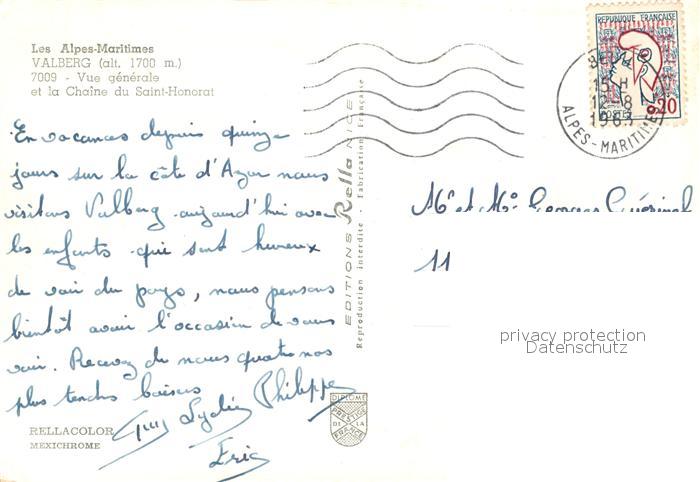 Les Alpes-Maritimes
VALBERG (alt. 1700 m.)
7009 - Vue générale
et la Chaîne du Saint-Honorat
En vacances depuis quinze
jours sur la côte d'Azur nous
visitons Valberg aujourd'hui avec
les enfants qui sont heureux
de voir du pays, nous pensons
bientôt avoir l'occasion de vous
voir. Recevez de nous quatre nos
plus tendres baisers
Lydie Philippe
Eric
RELLACOLOR
MEXICHROME
EDITIONS Rella NICE
Reproduction interdite - Fabrication Française
DIPLOME
PRESTIGE
DE LA
FRANCE
REPUBLIQUE FRANÇAISE
0,20
POSTES
15 H
12-8
196
ALPES-MARITIMES
Mr et Me Georges
11
privacy protection
Datenschutz